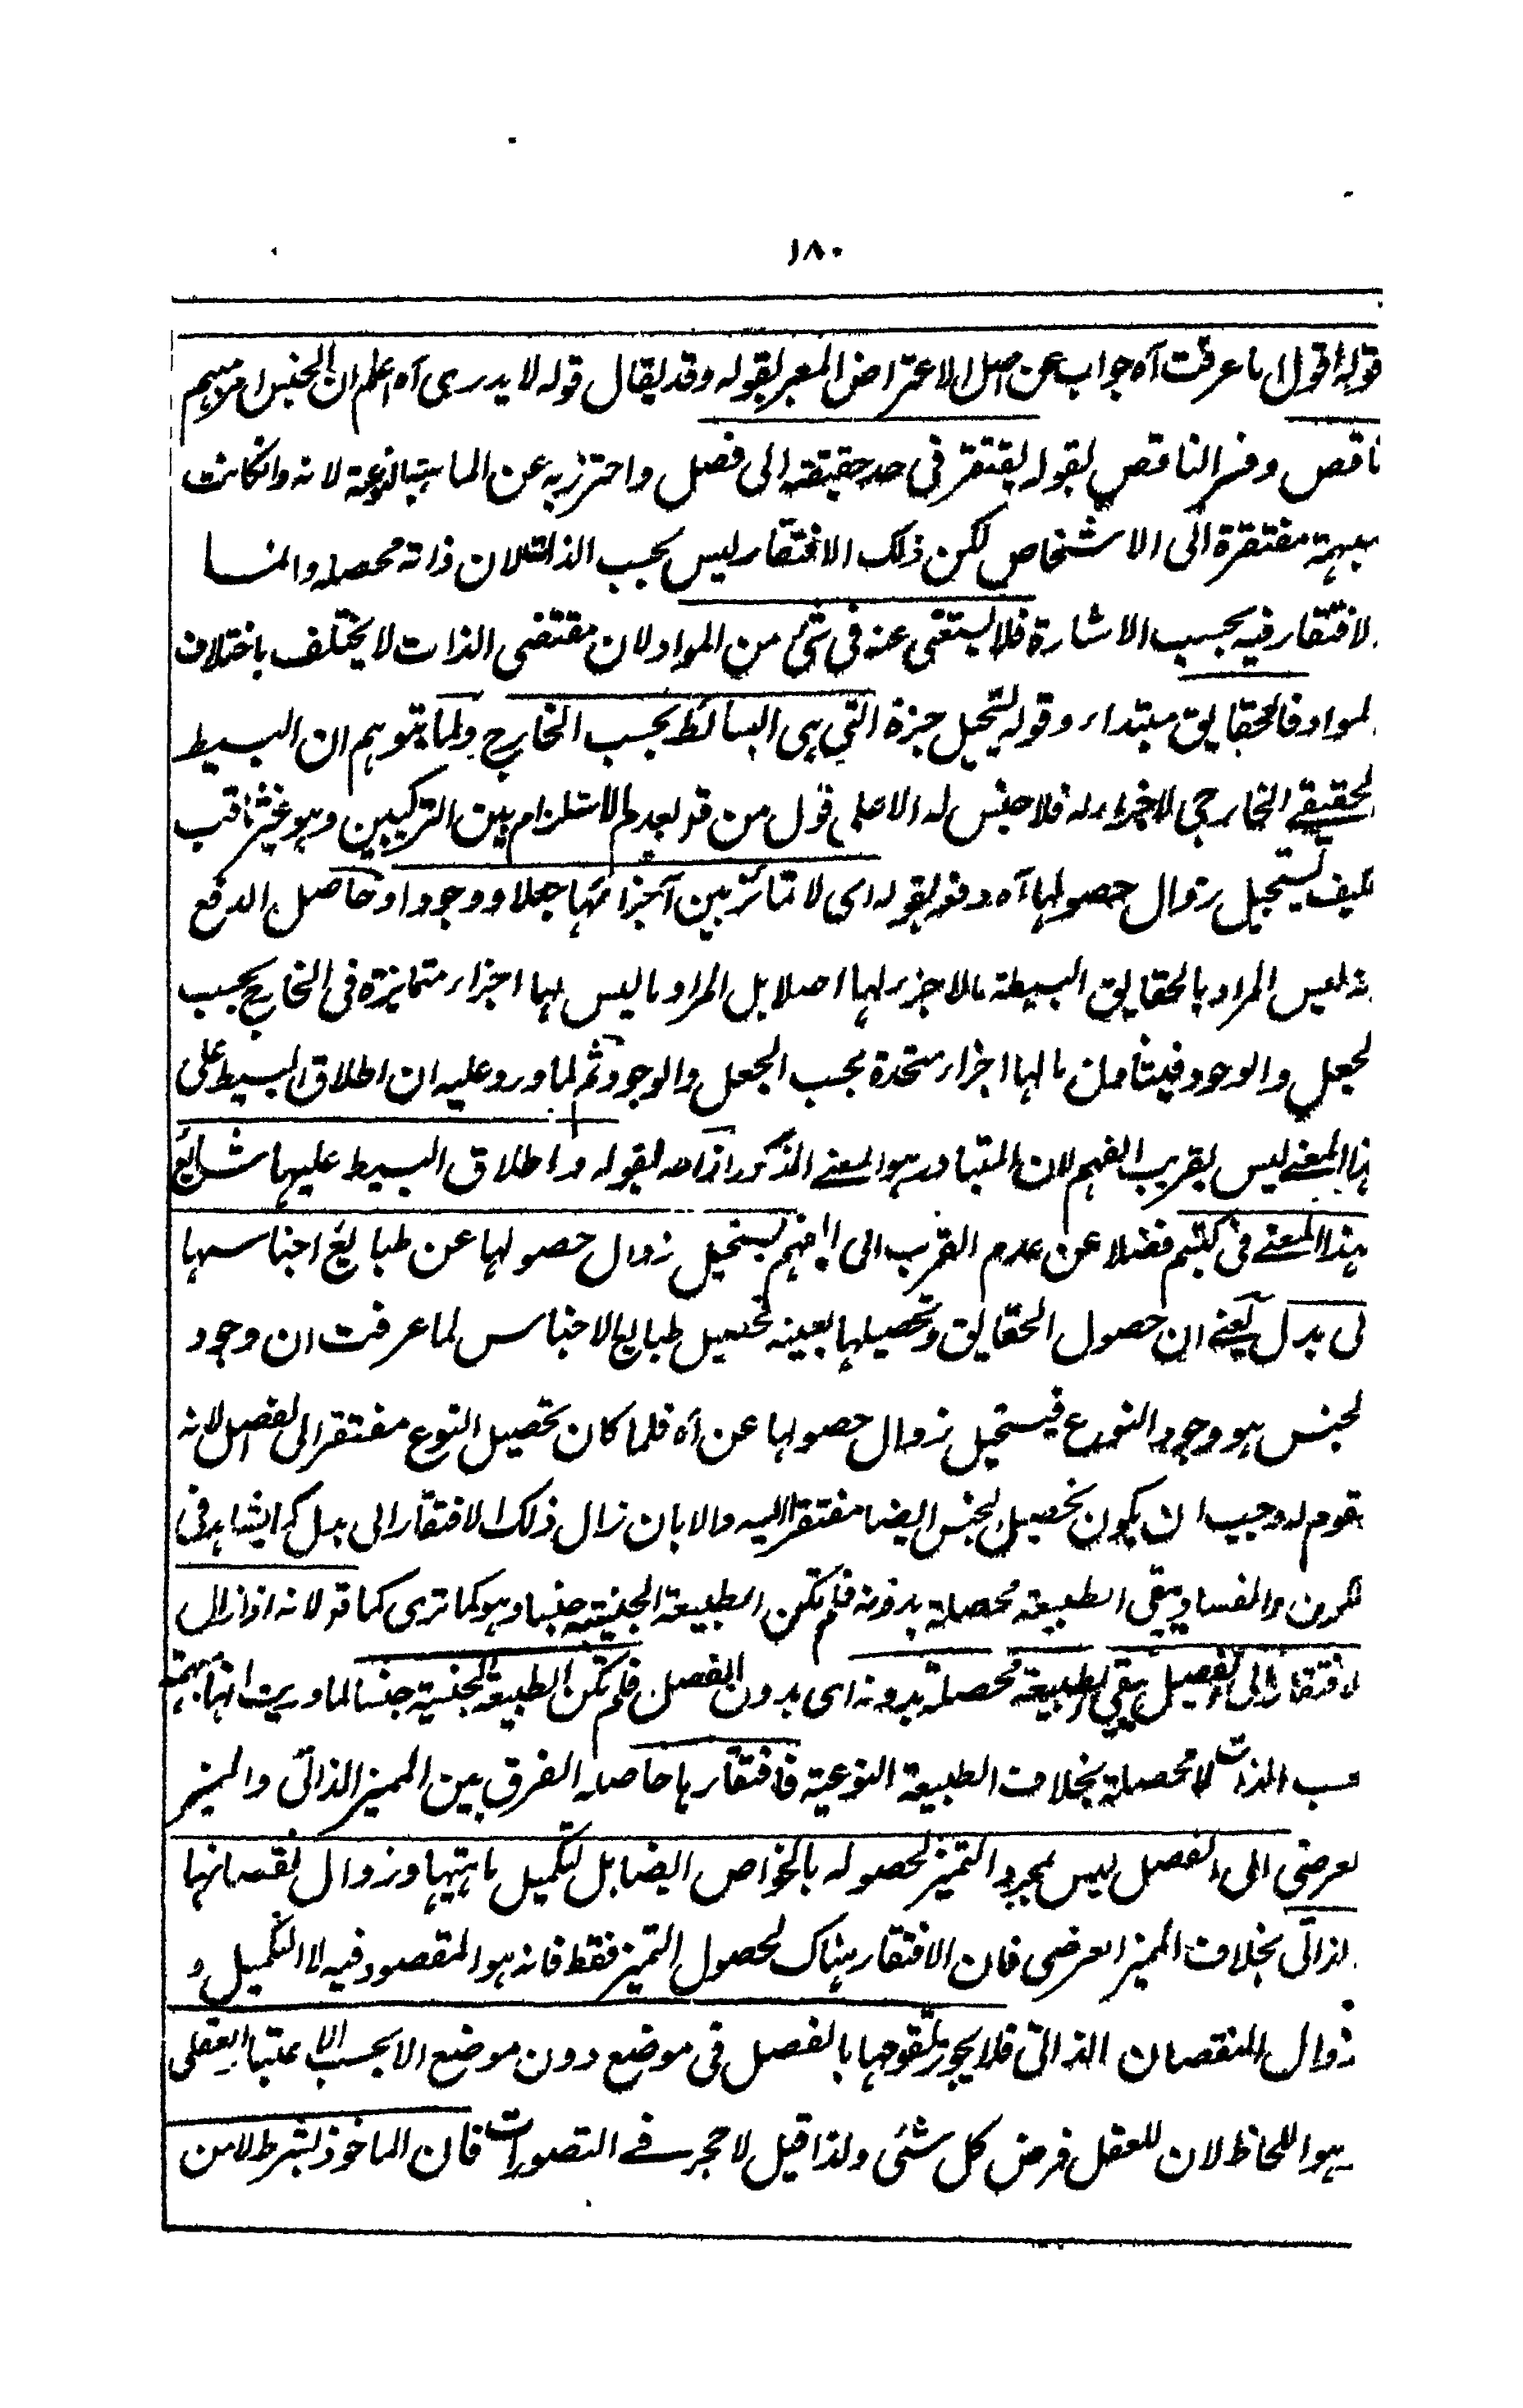 ١٨٠
قوله اقول ما عرفت آه جواب عن اصل الاعتراض المعبر بقوله وقد يقال قوله لا يدرى آه اعلم ان الجنس امر مبهم
ناقص وفسر الناقص بقوله يفتقر فى حد حقيقته الى فصل واحترز به عن الماهية النوعية لانه وانكانت
مبهمة مفتقرة الى الاشخاص لكن ذلك الافتقار ليس بحسب الذات لان ذاته محصله وانما
لافتقار فيه بحسب الاشارة فلا يستغنى عنه فى شئ من المواد لان مقتضى الذات لا يختلف باختلاف
لمواد فالحقايق مبتداء وقوله يستحيل خبره التى هى البسائط بحسب الخارج ولما يتوهم ان البسيط
لحقيقى الخارجى لا جزء له فلا جنس له الا على قول من قو بعدم الاستلزام بين التركيبين وهو غير ثاقب
كيف يستحيل زوال حصولها آه دفعه بقوله اى لا تمائز بين اجزائها جعلا ووجودا وحاصل الدفع
نه ليس المراد بالحقايق البسيطة ما لا جزء لها اصلا بل المراد ما ليس لها اجزاء متمايزة فى الخارج بحسب
لجعل والوجود فيتأمل ما لها اجزاء متحدة بحسب الجعل والوجود ثم لما ورد عليه ان اطلاق البسيط على
هذا المعنى ليس بقريب الفهم لان المتبادر هو المعنى المذكور ازاحه بقوله واطلاق البسيط عليها شائع
بهذا المعنى فى كتبهم فضلا عن عدم القرب الى الفهم يستحيل زوال حصولها عن طبايع اجناسها
لى بدل يعنى ان حصول الحقايق وتحصيلها بعينه تحصيل طبايع الاجناس لما عرفت ان وجود
لجنس هو وجود النوع فيستحيل زوال حصولها عن آه فلما كان تحصيل النوع مفتقر الى الفصل لانه
مقوم له وجب ان يكون تحصيل الجنس ايضا مفتقرا اليه والا بان زال ذلك الافتقار الى بدل كما يشاهد فى
لكون والفساد يبقى الطبيعة محصلة بدونه فلم تكن الطبيعة الجنسية جنسا وهو كما ترى كما قو لانه اذا زال
لافتقار الى الفصل يبقى الطبيعة محصلة بدونه اى بدون الفصل فلم تكن الطبيعة الجنسية جنسا لما دريت انها مبهمة
حسب الذات لا محصلة بخلاف الطبيعة النوعية فافتقارها حاصله الفرق بين المميز الذاتى والمميز
لعرضى الى الفصل ليس لمجرد التميز لحصوله بالخواص ايضا بل لتكميل ماهيتها وزوال نقصانها
لذاتى بخلاف المميز العرضى فان الافتقار هناك لحصول التميز فقط فانه هو المقصود فيه لا التكميل و
زوال النقصان الذاتى فلا يجوز تقومها بالفصل فى موضع دون موضع الا بحسب الاعتبار العقلى
هو اللحاظ لان للعقل فرض كل شئى ولذا قيل لا حجر فے التصورات فان الماخوذ بشرط لا من